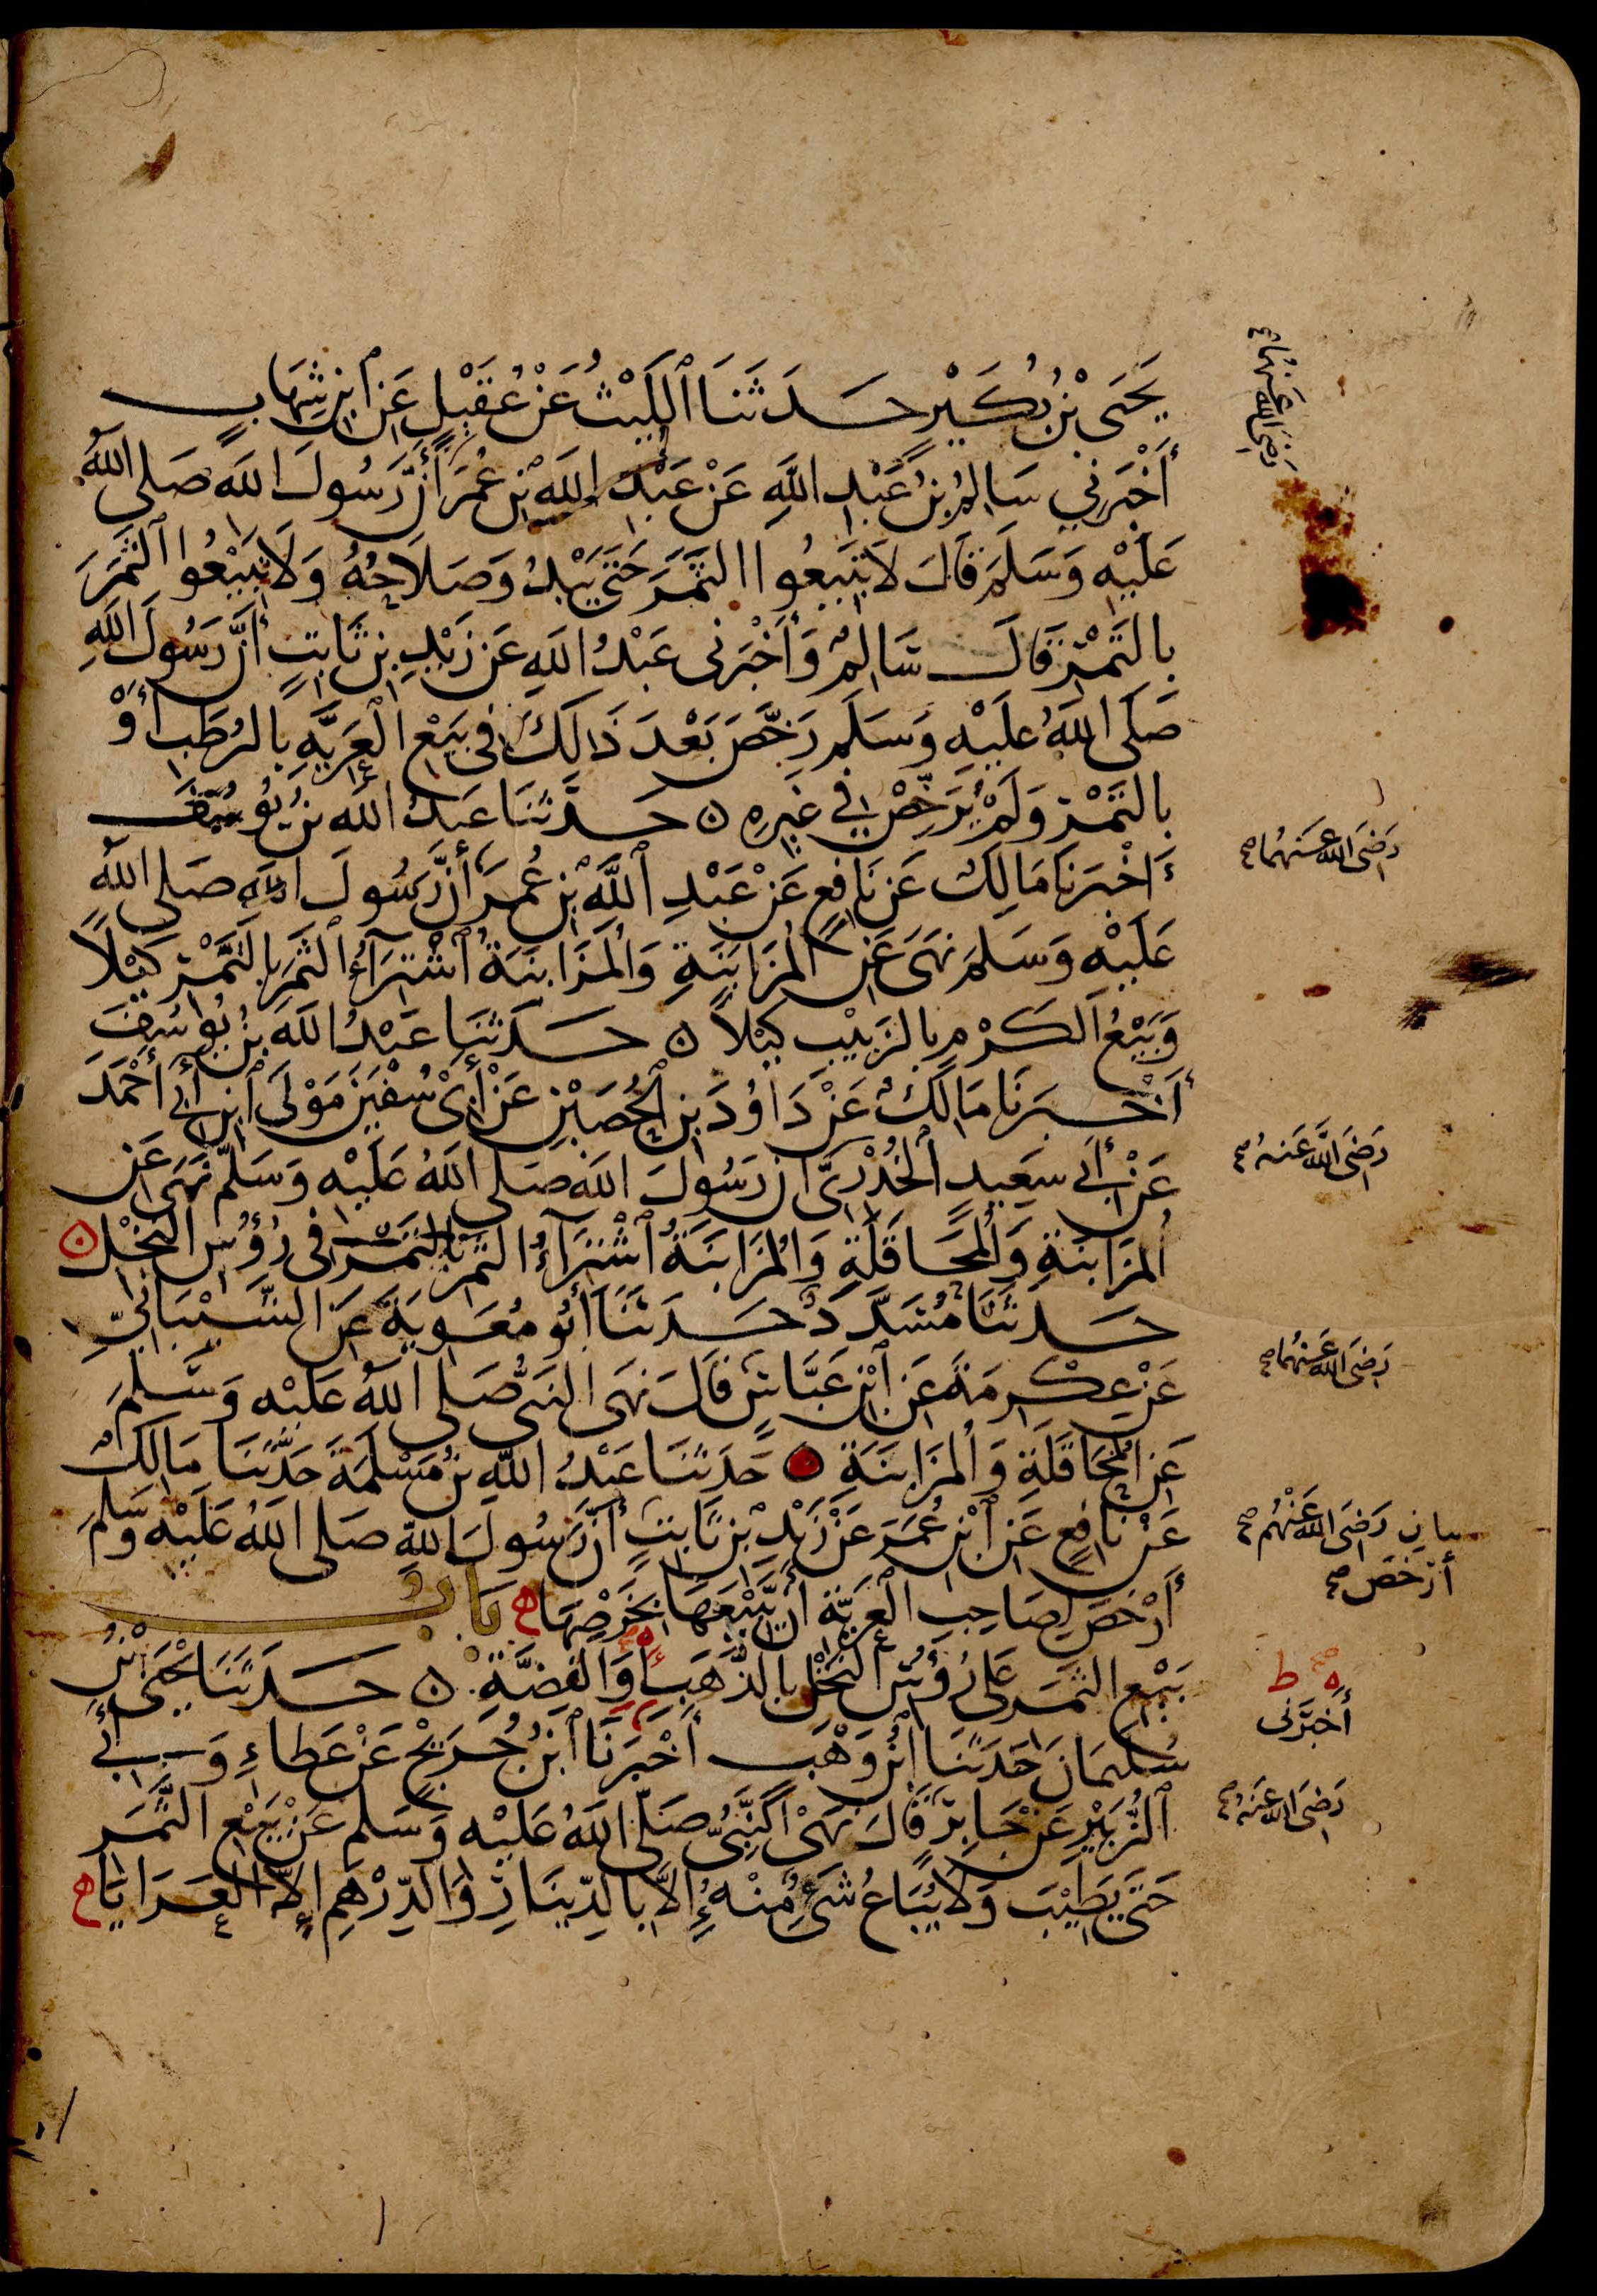 يَحْيَى بْنُ بُكَيْرٍ حَدَّثَنَا ٱللَّيْثُ عَنْ عُقَيْلٍ عَنِ ٱبْنِ شِهَابٍ
رَضِيَ اللهُ عَنْهُمَا صح
أَخْبَرَنِي سَالِمُ بْنُ عَبْدِ اللَّهِ عَنْ عَبْدِ اللَّهِ بْنِ عُمَرَ أَنَّ رَسُولَ اللَّهِ صَلَّى اللَّهُ
عَلَيْهِ وَسَلَّمَ قَالَ لَا تَبِيعُوا الثَّمَرَ حَتَّى يَبْدُوَ صَلَاحُهُ وَلَا تَبِيعُوا ٱلثَّمَرَ
بِالتَّمْرِ قَالَ سَالِمٌ وَأَخْبَرَنِي عَبْدُ اللَّهِ عَنْ زَيْدِ بْنِ ثَابِتٍ أَنَّ رَسُولَ اللَّهِ
صَلَّى اللَّهُ عَلَيْهِ وَسَلَّمَ رَخَّصَ بَعْدَ ذَلِكَ فِي بَيْعِ الْعَرِيَّةِ بِالرُّطَبِ أَوْ
بِالتَّمْرِ وَلَمْ يُرَخِّصْ فِي غَيْرِهِ ن حَدَّثَنَا عَبْدُ اللَّهِ بْنُ يُوسُفَ
أَخْبَرَنَا مَالِكٌ عَنْ نَافِعٍ عَنْ عَبْدِ ٱللَّهِ بْنِ عُمَرَ أَنَّ رَسُولَ اللَّهِ صَلَّى اللَّهُ
رَضِيَ اللهُ عَنْهُمَا صح
عَلَيْهِ وَسَلَّمَ نَهَى عَنِ الْمُزَابَنَةِ وَالْمُزَابَنَةُ ٱشْتِرَاءُ ٱلثَّمَرِ بِالتَّمْرِ كَيْلًا
وَبَيْعُ الْكَرْمِ بِالزَّبِيبِ كَيْلًا ن حَدَّثَنَا عَبْدُ اللَّهِ بْنُ يُوسُفَ
أَخْبَرَنَا مَالِكٌ عَنْ دَاوُدَ بْنِ ٱلْحُصَيْنِ عَنْ أَبِي سُفْيَنَ مَوْلَى ٱبْنِ أَبِي أَحْمَدَ
عَنْ أَبِي سَعِيدٍ ٱلْخُدْرِيِّ أَنَّ رَسُولَ اللَّهِ صَلَّى اللَّهُ عَلَيْهِ وَسَلَّمَ نَهَى عَنِ
رَضِيَ اللهُ عَنْهُ صح
الْمُزَابَنَةِ وَالْمُحَاقَلَةِ وَالْمُزَابَنَةُ ٱشْتِرَاءُ الثَّمَرِ بِالتَّمْرِ فِي رُؤُسِ النَّخْلِ ن
حَدَّثَنَا مُسَدَّدٌ حَدَّثَنَا أَبُو مُعَوِيَةَ عَنِ الشَّيْبَانِيِّ
عَنْ عِكْرِمَةَ عَنِ ٱبْنِ عَبَّاسٍ قَالَ نَهَى النَّبِيُّ صَلَّى اللَّهُ عَلَيْهِ وَسَلَّمَ
رَضِيَ اللهُ عَنْهُمَا صح
عَنِ الْمُحَاقَلَةِ وَالْمُزَابَنَةِ ن حَدَّثَنَا عَبْدُ اللَّهِ بْنُ مَسْلَمَةَ حَدَّثَنَا مَالِكٌ
عَنْ نَافِعٍ عَنِ ٱبْنِ عُمَرَ عَنْ زَيْدِ بْنِ ثَابِتٍ أَنَّ رَسُولَ اللَّهِ صَلَّى اللَّهُ عَلَيْهِ وَسَلَّمَ
رَضِيَ اللهُ عَنْهُمْ صح
أَرْخَصَ لِصَاحِبِ الْعَرِيَّةِ أَنْ يَبِيعَهَا بِخَرْصِهَا ه بَابُ
أَرْخَصَ صح
بَيْعِ الثَّمَرِ عَلَى رُؤُسِ النَّخْلِ بِالذَّهَبِ أَوِ الْفِضَّةِ ن حَدَّثَنَا يَحْيَى بْنُ
ه ط
أَخْبَرَنِي
سُلَيْمَانَ حَدَّثَنَا ٱبْنُ وَهْبٍ أَخْبَرَنَا ٱبْنُ جُرَيْجٍ عَنْ عَطَاءٍ وَأَبِي
ٱلزُّبَيْرِ عَنْ جَابِرٍ قَالَ نَهَى النَّبِيُّ صَلَّى اللَّهُ عَلَيْهِ وَسَلَّمَ عَنْ بَيْعِ الثَّمَرِ
رَضِيَ اللهُ عَنْهُ صح
حَتَّى يَطِيْبَ وَلَا يُبَاعُ شَيْءٌ مِنْهُ إِلَّا بِالدِّينَارِ وَالدِّرْهَمِ إِلَّا الْعَرَايَا ه